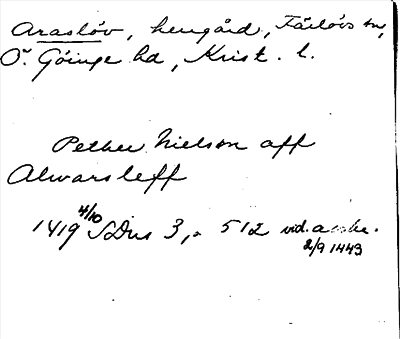 Araslöv, herrgård, Färlövs sn,
Ö. Göinge hd, Krist. l.
Pether Nielson aff
Alwarsleff
1419 4/10 SDns 3, s. 512 vid. avskr.
2/9 1443